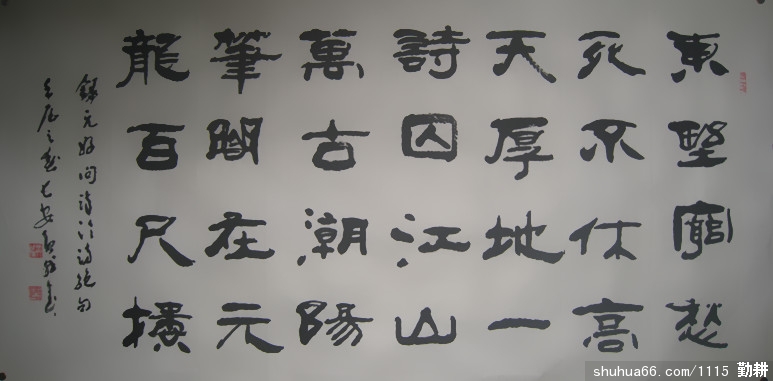 東野窮愁
死不休高
天厚地一
詩囚江山
萬古潮陽
筆在元
龍百尺樓
錄元好問詩論詩絕句
壬辰之長安
shuhua66.com/1115 勤耕